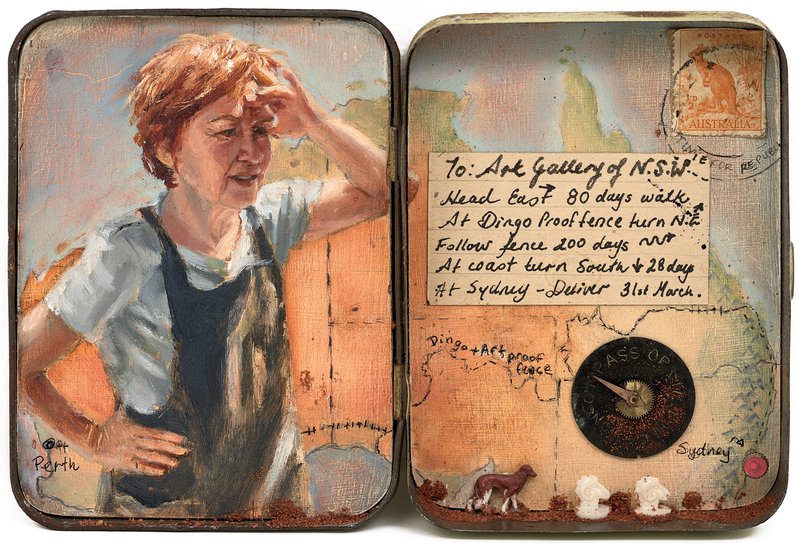 Perth
POSTAGE
½D
AUSTRALIA
TIME FOR REPUBL
To: Art Gallery of N.S.W.
Head East 80 days walk
At Dingo Proof fence turn N.E
Follow fence 200 days
At coast turn South 28 days
At Sydney - Deliver 31st March.
Dingo + Art proof
fence
COMPASS OF
Sydney